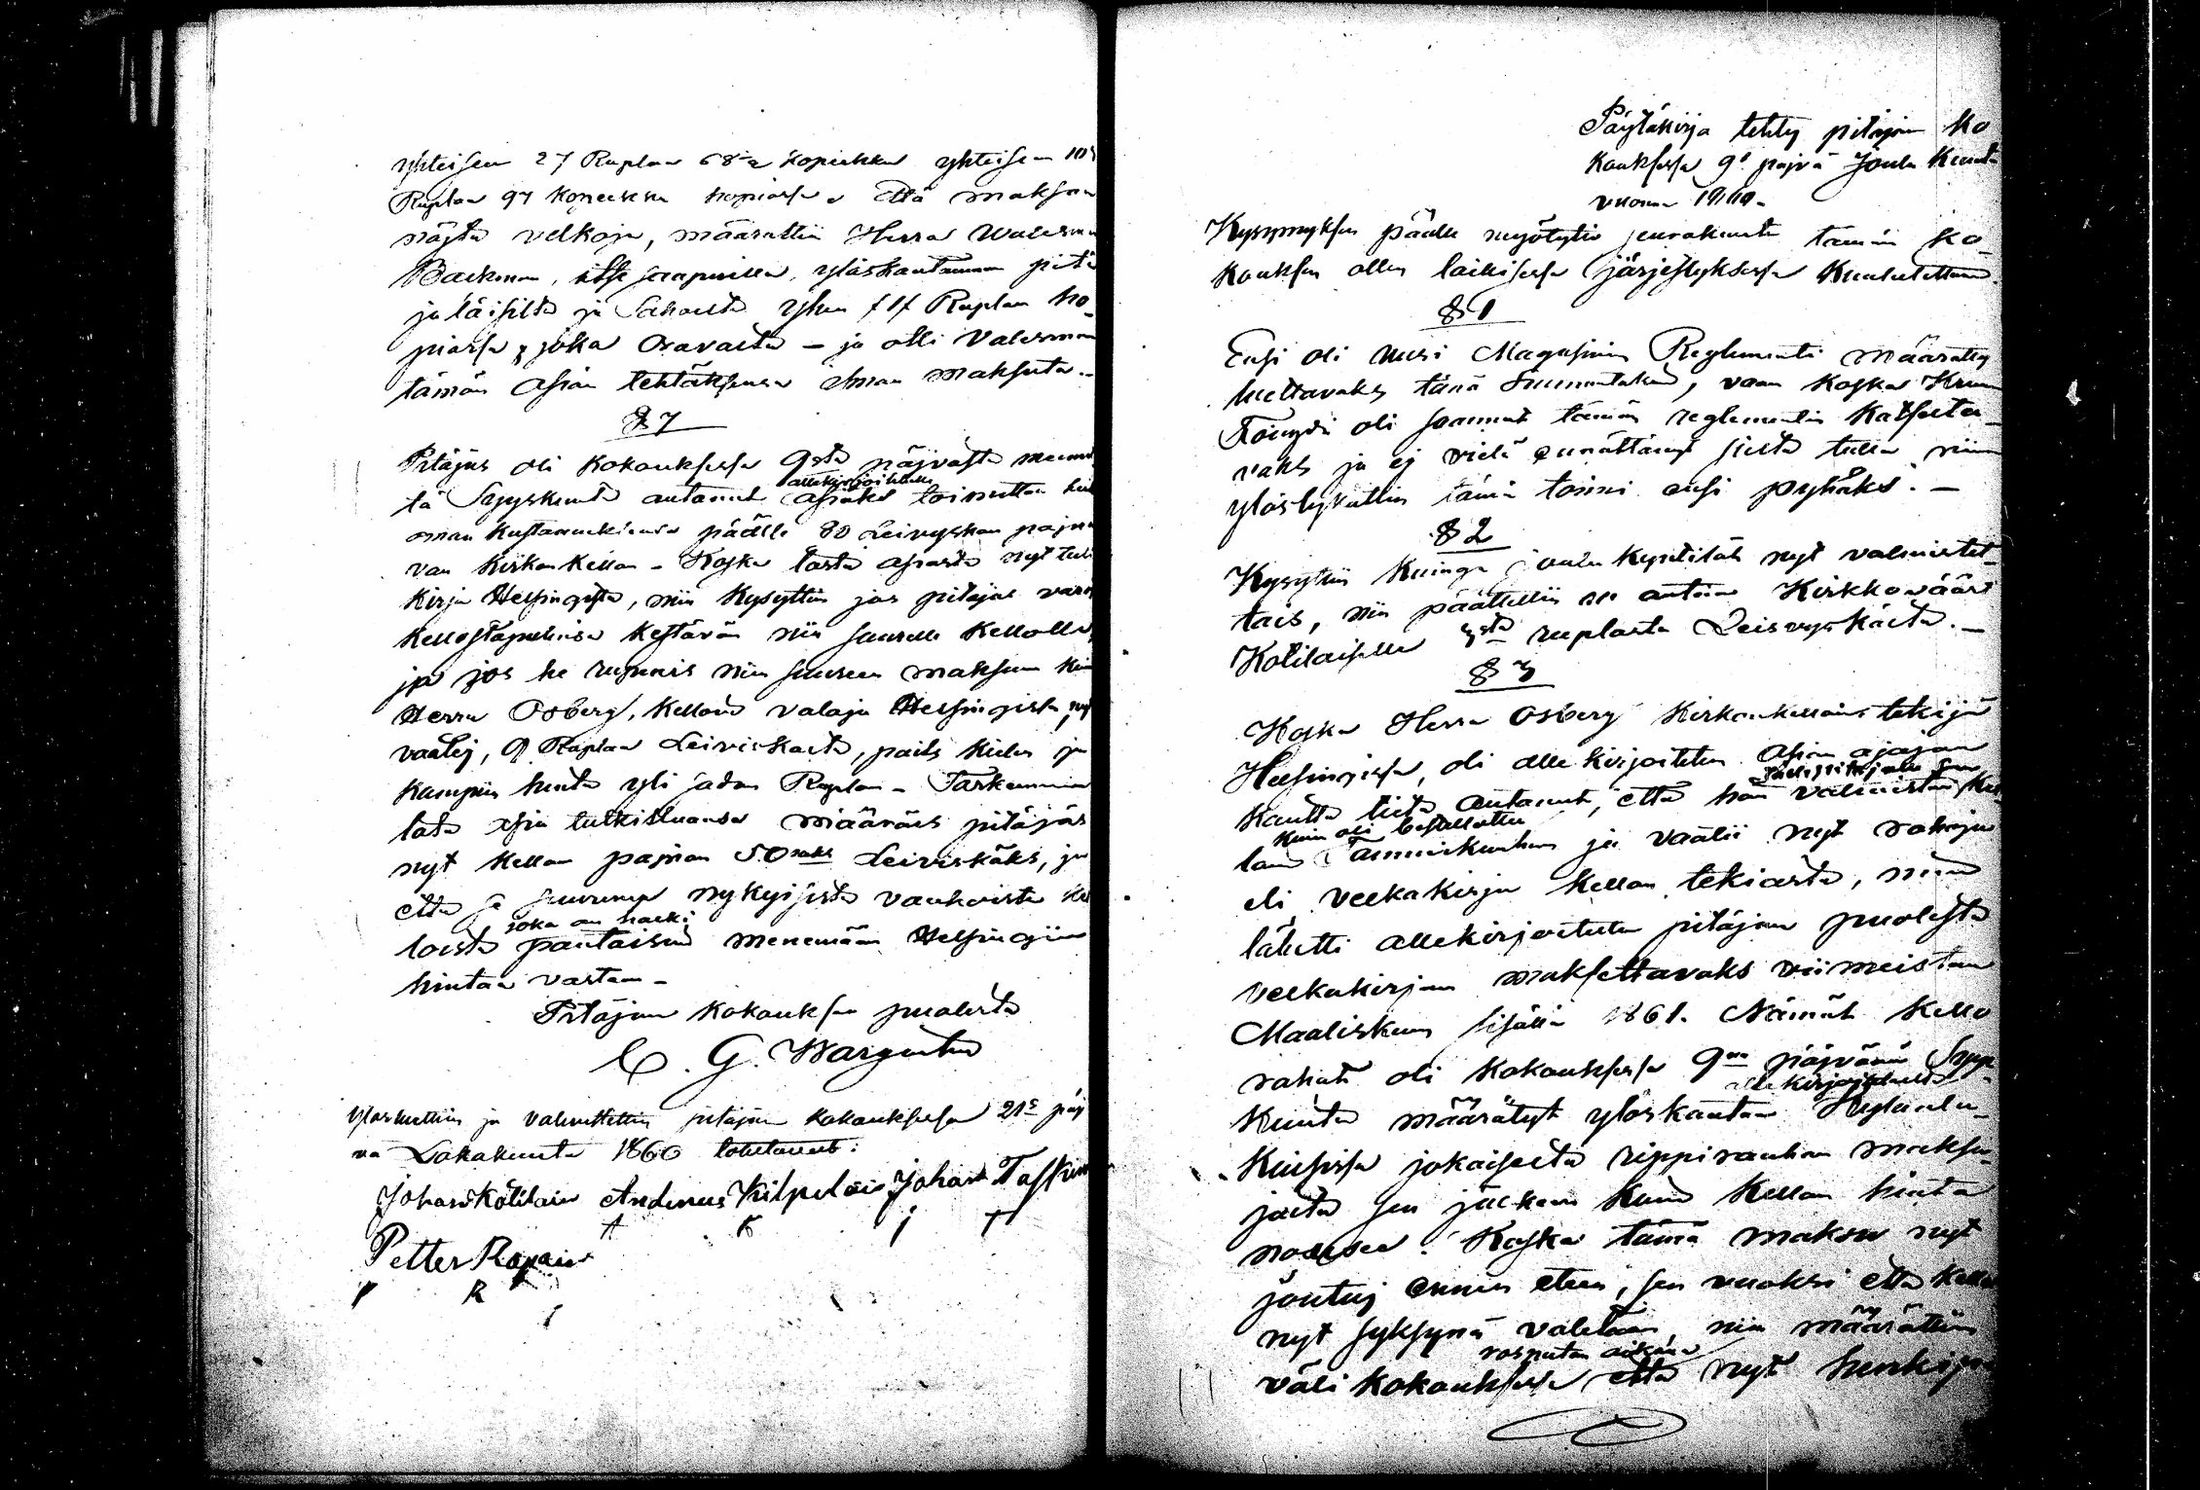 yhteisen 27 Ruplan 68½ kopiekka yhteisen 105
Ruplan 97 Kopeekka hopiassa Että maksaa
näjtä velkoja, määrättiin Herra Walesman
Backman, itse saapuvilla, ylöskantamaan pitä
jäläisiltä ja Sahoilta yhen /1/ Ruplan ho-
piassa, joka Osavaelta – ja otti Valesman
tämän Asian tehtäksensä ilman maksuta. –
§ 7
Pitäjäs oli Kokouksessa 9stä päjvästä
allekirjoittanelle
tä Syyskuuta antanut asiaks toimittaa
oman kustannuksensa päälle 80 Leivyskän pajna
van Kirkon Kellon – Koska tästä asiasta nyt tuli
Kirja Helsingistä, niin Kysyttiin jos pitäjäs
Kellostapulinsa Kestävän niin suurelle Kellolle,
ja jos he rupeais niin suureen maksuun kuin
Herra Osberg, Kellon valaja Helsingistä,
vaatij, 9 Ruplaa Leiviskästä, paitsi kielen ja
hinta yli sadan Ruplan – Tarkemmin
tätä Asia tutkittuansa määräis pitäjäs
nyt Kellon pajnon 50naks Leiviskäks, ja
että ja suurempi nykyisistä vanhoista
joka on halki
loista pantaisiin menemään Helsingiin
hintaa vastan –
Pitäjän Kokouksen puolesta
C. G. Wargentin
Ylosluettiin ja vahvistettiin pitäjän kokouksessa 21s päj
vä Lokakuuta 1860 todistavat:
Johan Kotilain Anderus Kilpeläin Johan Taskin
A K J T
Petter Ropain
P R
Päytäkirja tehty pitäjän Ko
kouksessa 9s päjvä Joulu Kuuta
vuonna 1860.
Kysymyksen päälle myötytti seurakunta tämän Ko-
kouksen ollen laillisessa järjestyksessä Kuulutettuna.
§ 1
Ensi oli uusi Magasinin Reglementi määrätty
luettavaks tänä Sunnuntaina, vaan koska Kruun
Fougdi oli saanut tämän reglementin Katseta-
vaks ja ej vielä ennättänyt sieltä tulla niin
ylöslykättiin tämä toimi ensi pyhäks. –
§ 2
Kysyttiin Kuinga joulu kynttilät nyt valmistet-
tais, niin päätettiin ne antaa Kirkkoväärt
Kotilaiselle 3sta ruplasta Leivyskästä. –
§ 3
Koska Herra Osberg Kirkonkelloin tekijä
Helsingissä, oli allekirjoitetun Asian ajajan
kautta tietä antanut, että hän valmistaa Kel
kuin oli bestellattu
lon Tammikuuhun ja vaatii nyt rahoja
eli velkakirja Kellon tekiästä, niin
lähetti allekirjoitettu pitäjän puolesta
velkakirjan maksettavaks viimeistän
Maaliskuun sisällä 1861. Nämät Kello
rahat oli Kokouksessa 9nä päjvänä Syys-
allekirjoitetulta
Kuuta määrätyt ylöskantaa
Kinkerissä jokaiselta rippirauhan maksa-
jalta sen jälkeen Kuin Kellon hinta
nousee. Koska tämä maksu nyt
joutuj ennen eteen, sen vuoksi että Kello
nyt syksynä valetaan, niin määrättiin
väli kokouksessa että nyt henkipa